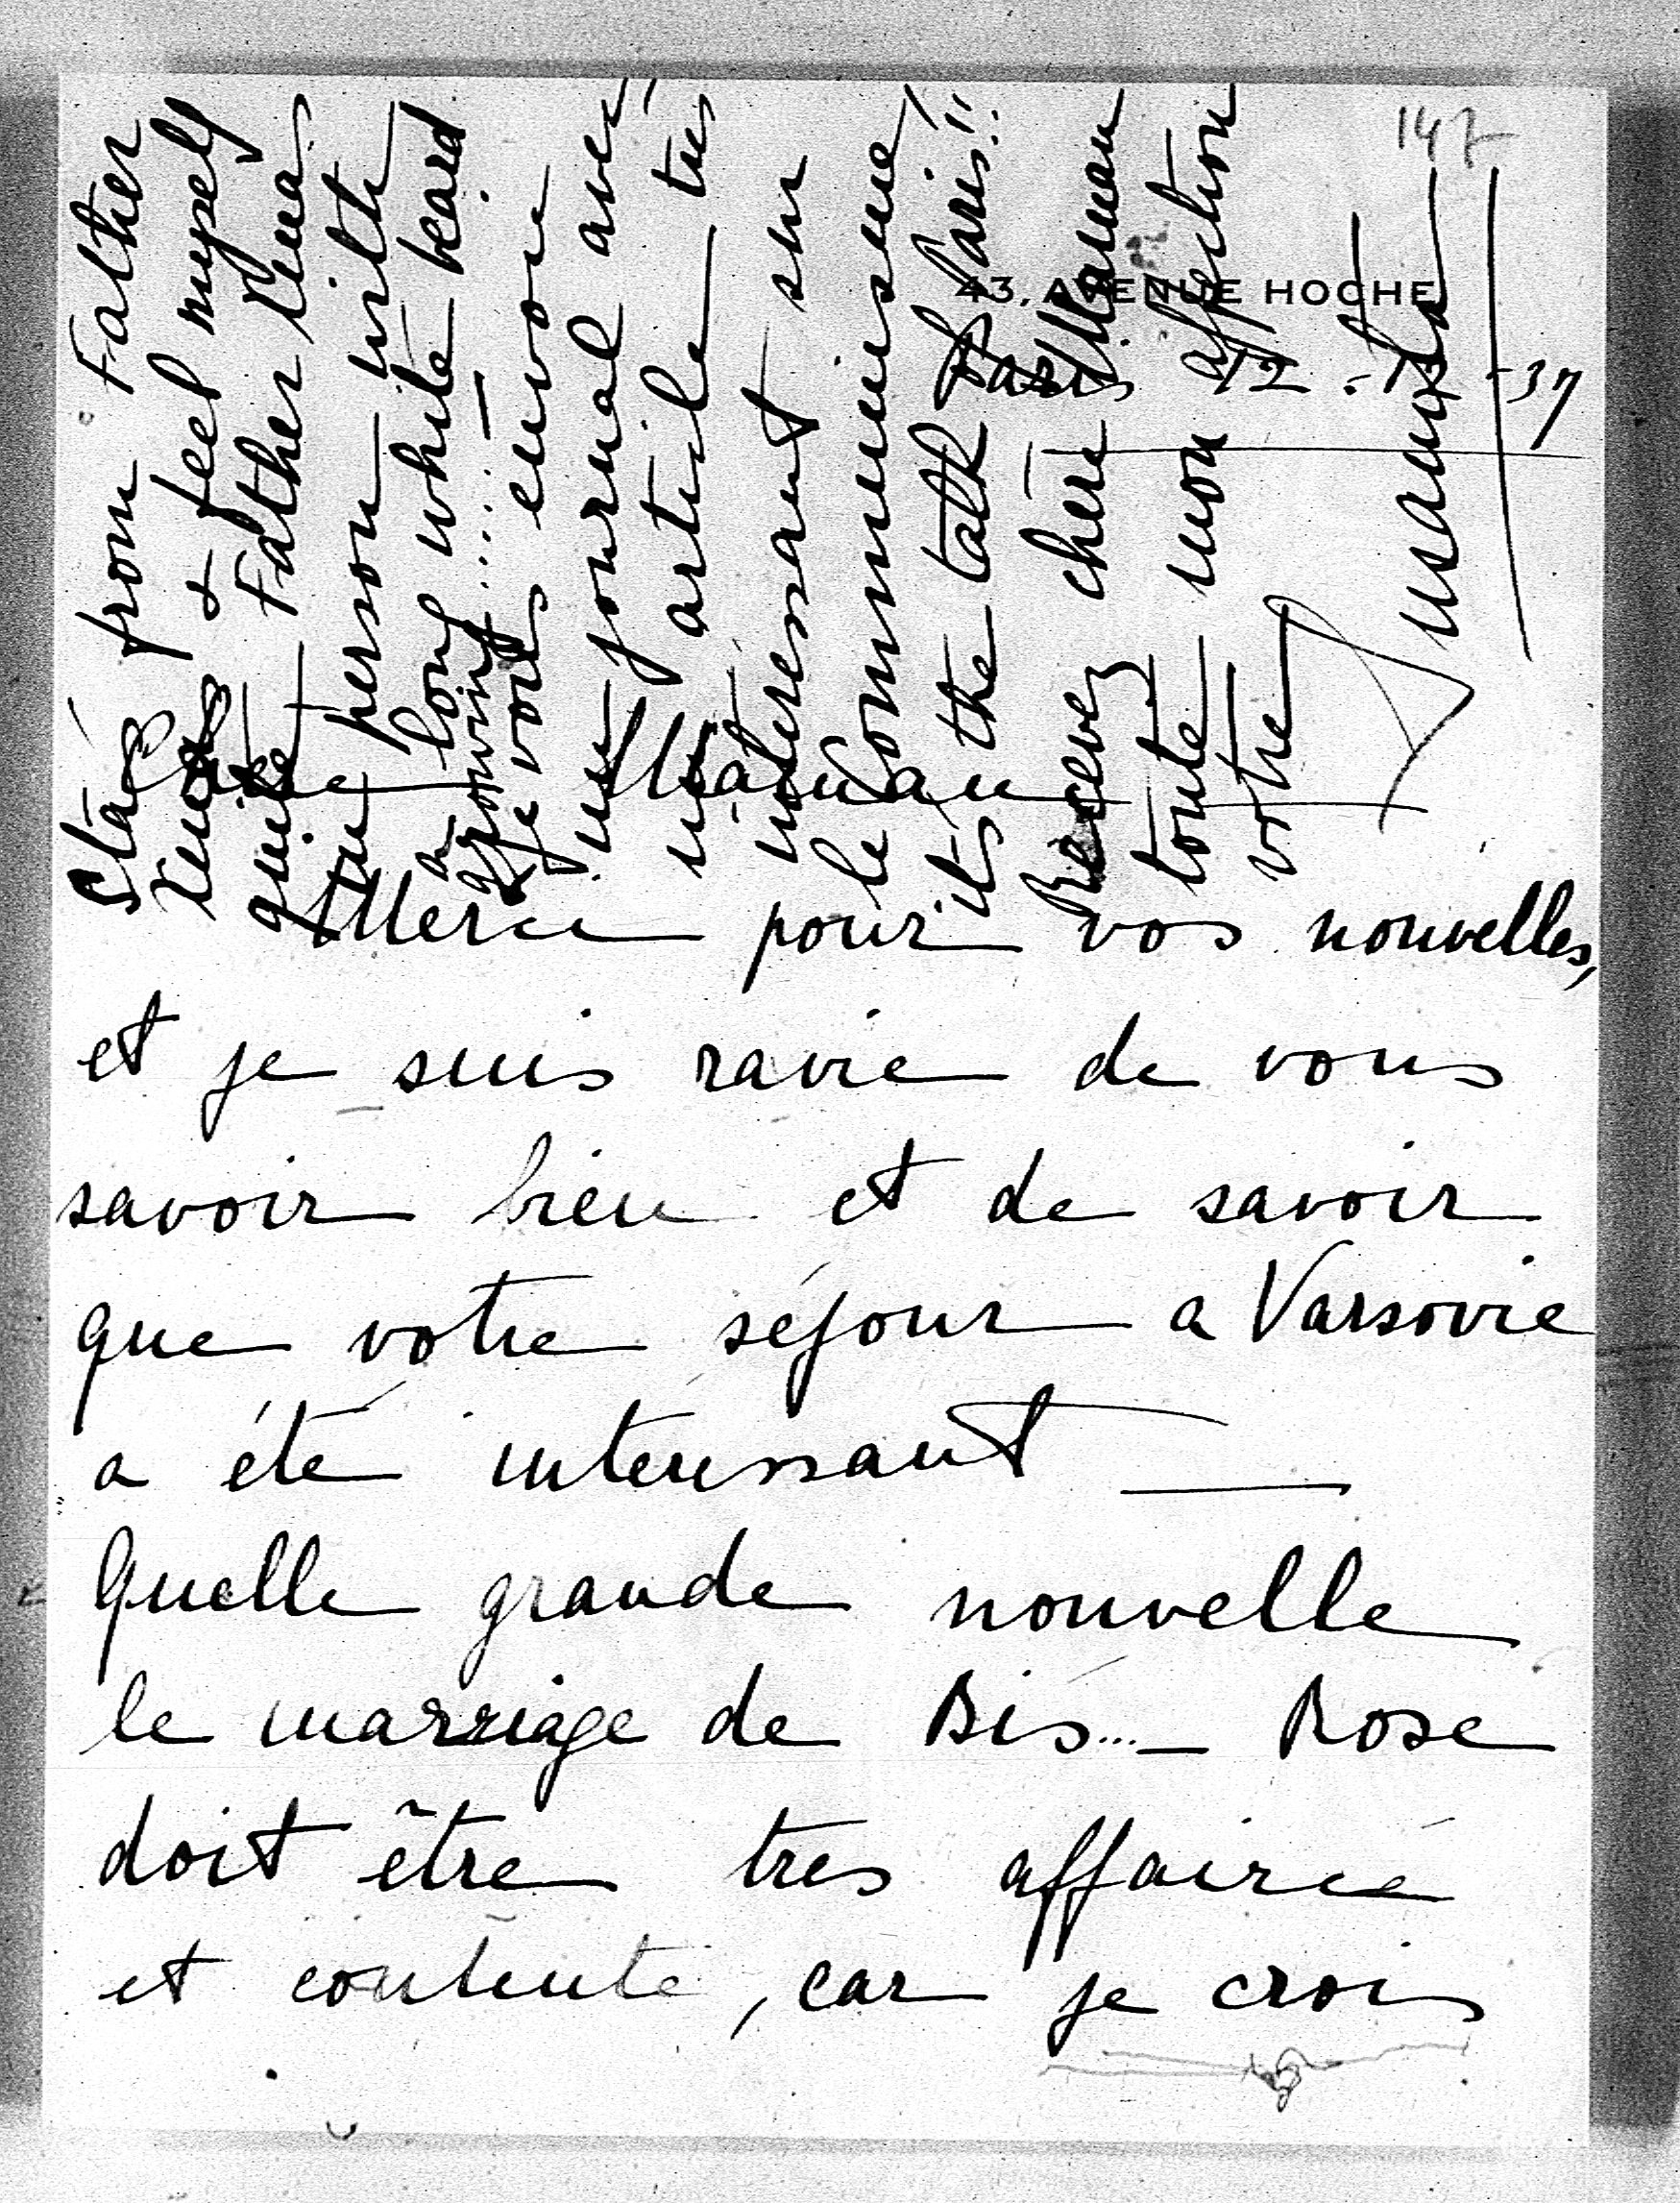 147
43, AVENUE HOCHE
Paris 12 - 1 - 37
Chère Maman
Merci pour vos nouvelles,
et je suis ravie de vous
savoir bien et de savoir
que votre séjour a Varsovie
a été interessant —
Quelle grande nouvelle
le marriage de Bis... — Rose
doit être tres affairée
et contente, car je crois
from Father
& feel myself
quite Father
person with
a long white beard
growing......
Je vous envoie
un journal avec
un article tres
interessant sur
le communisme
its the talk of Paris!!
Recevez chère Maman
toute mon affection
votre